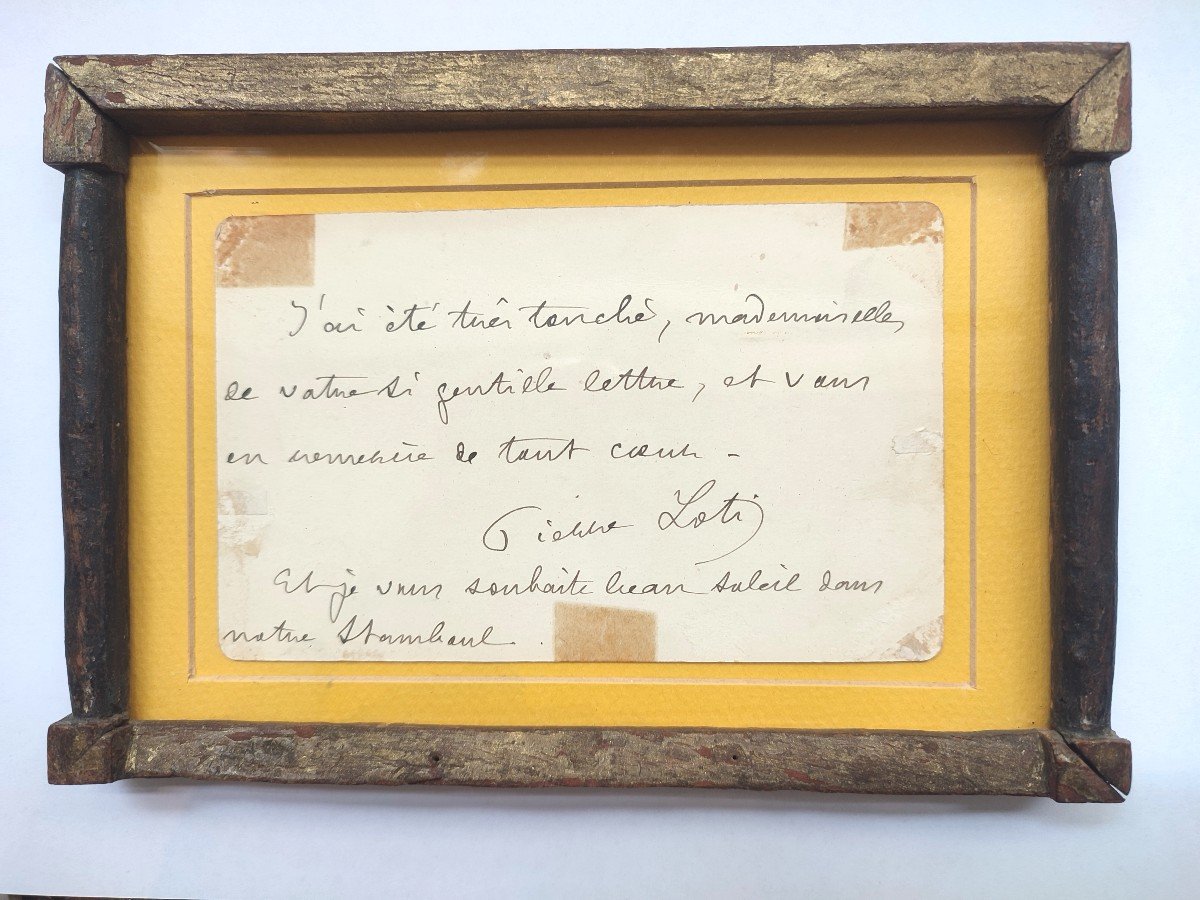 J'ai été très touché, mademoiselle,
de votre si gentille lettre, et vous
en remercie de tout cœur -
Pierre Loti
Et je vous souhaite beau soleil dans
notre Stamboul.